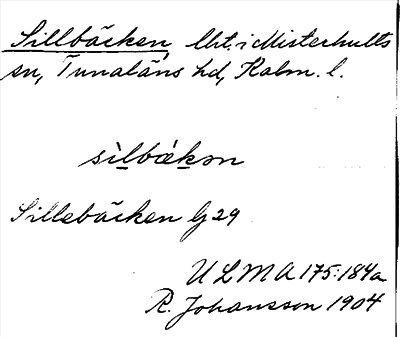 Sillbäcken, lht. i Misterhults
sn, Tunaläns hd, Kalm. l.
sìlbækən
Sillebäcken G 29
ULMA 175:184a
R. Johansson 1904